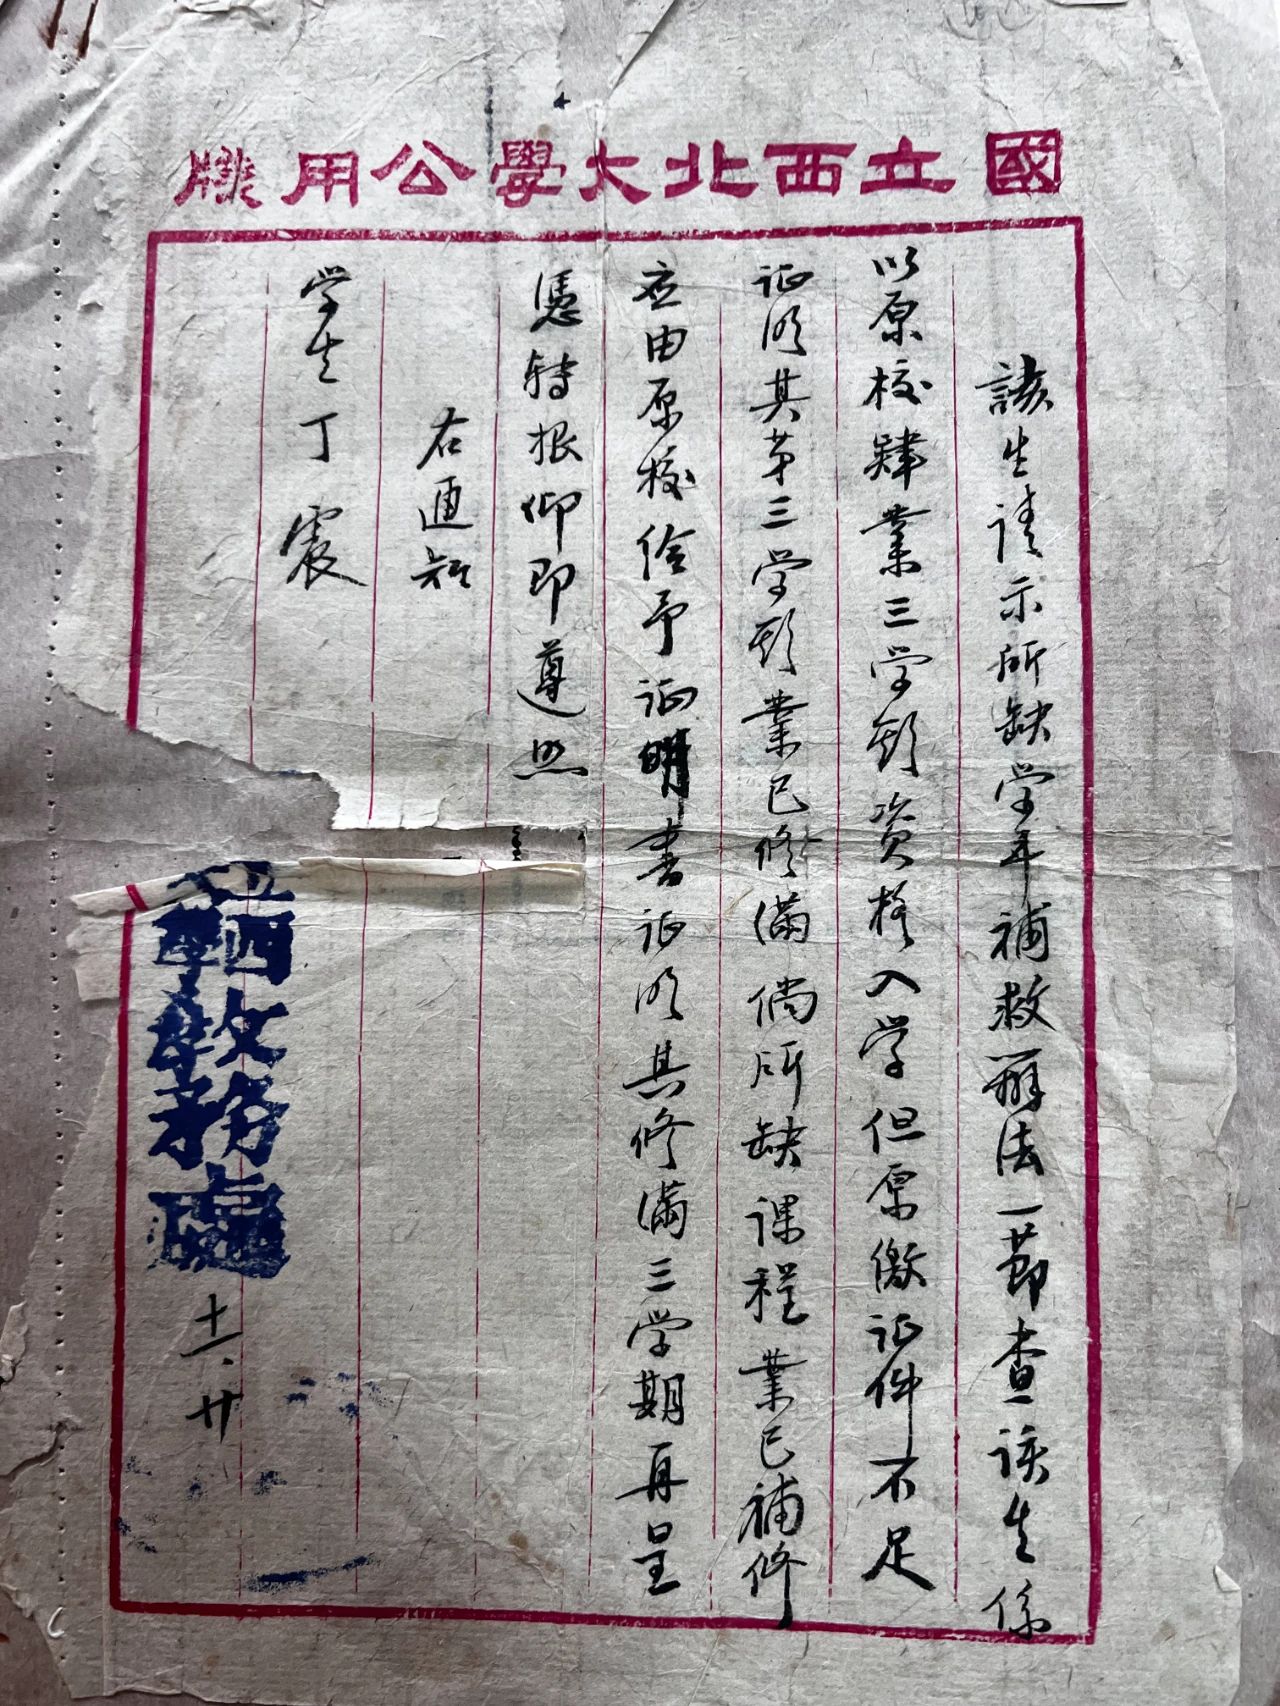 國立西北大學公用牋
該生请示所缺学年補救辦法一節查该生係
以原校肄業三学期资格入学但原缴证件不足
证明其第三学期業已修满倘所缺课程業已補修
应由原校给予证明書证明其修满三学期再呈
憑转报仰即遵照
右通知
学生丁震
立西
大學教務處
十一.廿